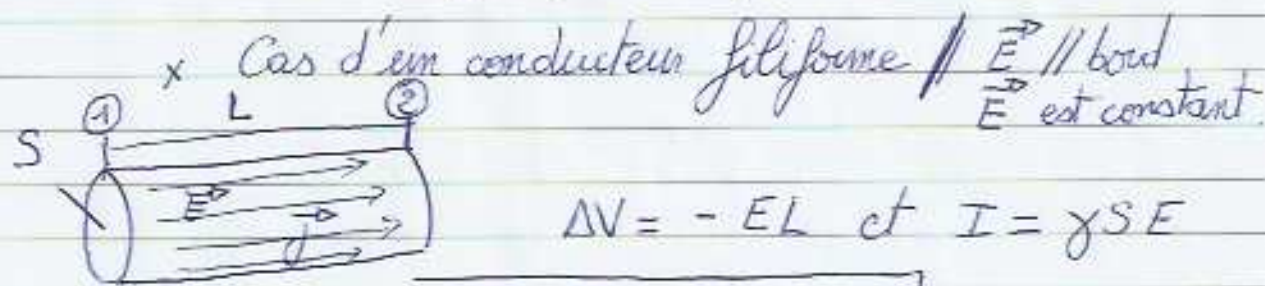 x Cas d'un conducteur filiforme // E⃗ // bord
E⃗ est constant.
① L ②
S
E⃗
j⃗
ΔV = - EL et I = γSE